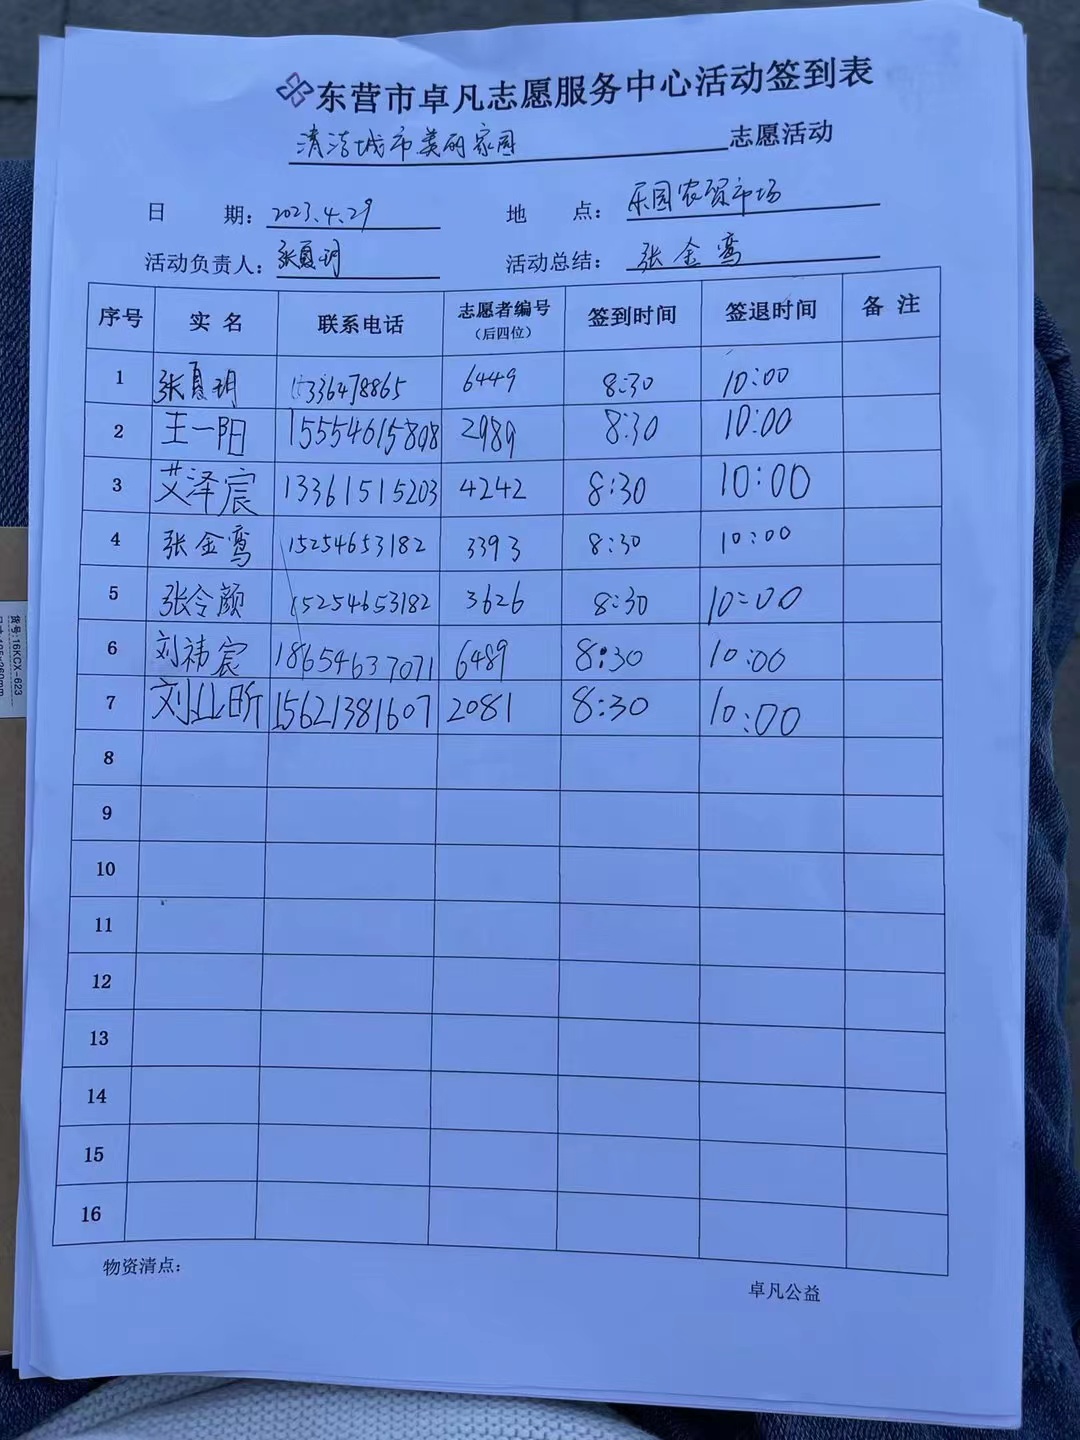 东营市卓凡志愿服务中心活动签到表
清洁城市美丽家园 志愿活动
日 期: 2023.4.29 地 点: 乐园农贸市场
活动负责人: 张夏玥 活动总结: 张金鸾
序号 实名 联系电话 志愿者编号(后四位) 签到时间 签退时间 备注
1 张夏玥 15336478865 6449 8:30 10:00
2 王一阳 15554615808 2989 8:30 10:00
3 艾泽宸 13361515203 4242 8:30 10:00
4 张金鸾 15254653182 3393 8:30 10:00
5 张令颜 15254653182 3626 8:30 10:00
6 刘祎宸 18654637071 6489 8:30 10:00
7 刘 昕 15621381607 2081 8:30 10:00
8
9
10
11
12
13
14
15
16
物资清点:
卓凡公益
货号:16KCX-623